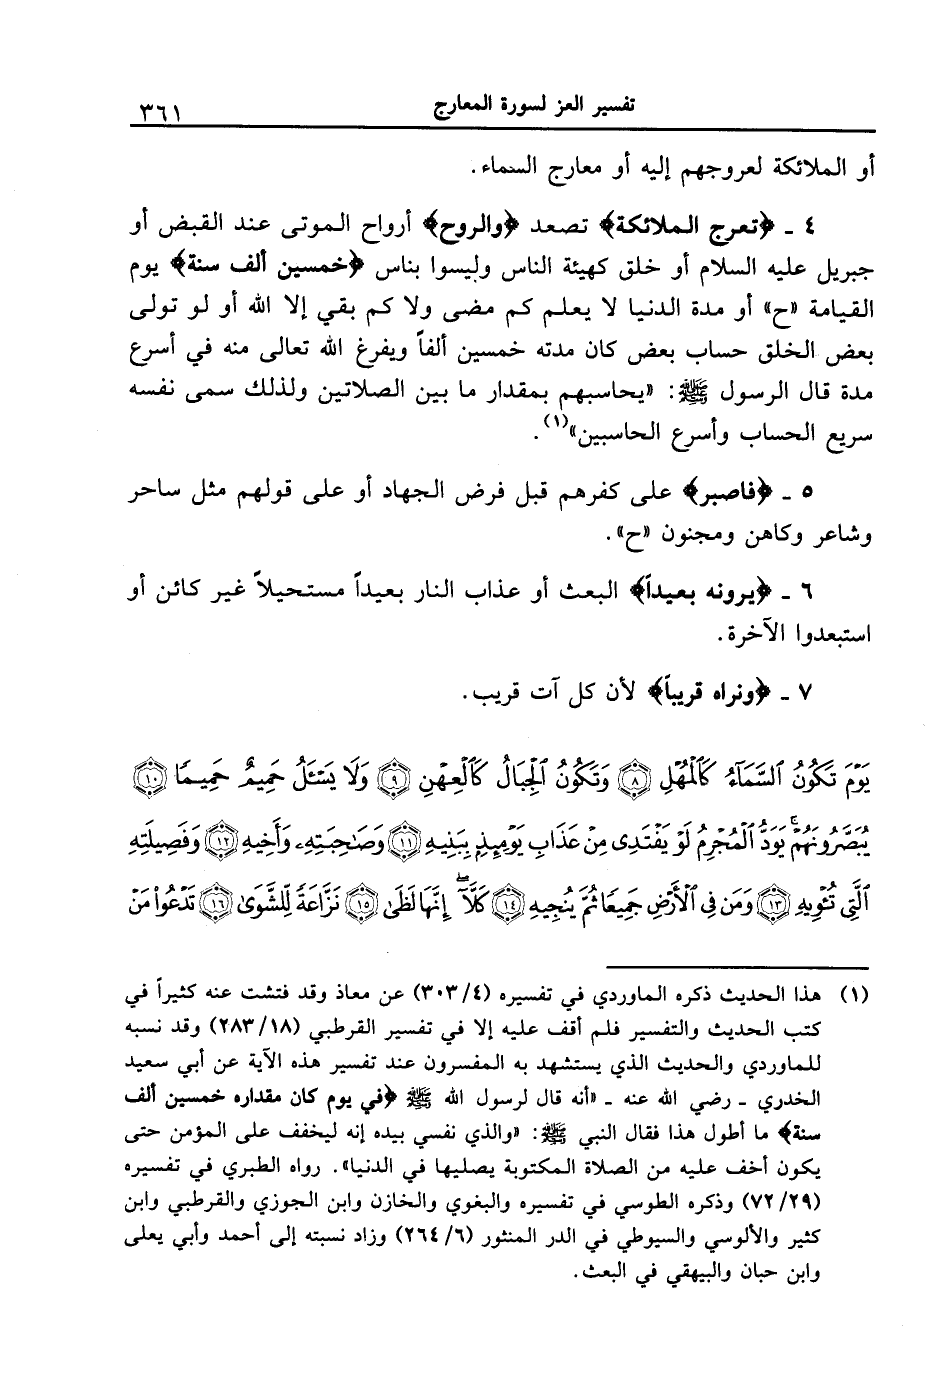 تفسير العز لسورة المعارج
٣٦١
أو الملائكة لعروجهم إليه أو معارج السماء.
٤ ـ ﴿تعرج الملائكة﴾ تصعد ﴿والروح﴾ أرواح الموتى عند القبض أو
جبريل عليه السلام أو خلق كهيئة الناس وليسوا بناس ﴿خمسين ألف سنة﴾ يوم
القيامة «ح» أو مدة الدنيا لا يعلم كم مضى ولا كم بقي إلا الله أو لو تولى
بعض الخلق حساب بعض كان مدته خمسين ألفاً ويفرغ الله تعالى منه في أسرع
مدة قال الرسول ﷺ: «يحاسبهم بمقدار ما بين الصلاتين ولذلك سمى نفسه
سريع الحساب وأسرع الحاسبين»(١).
٥ ـ ﴿فاصبر﴾ على كفرهم قبل فرض الجهاد أو على قولهم مثل ساحر
وشاعر وكاهن ومجنون «ح».
٦ ـ ﴿يرونه بعيداً﴾ البعث أو عذاب النار بعيداً مستحيلاً غير كائن أو
استبعدوا الآخرة.
٧ ـ ﴿ونراه قريباً﴾ لأن كل آت قريب.
يَوْمَ تَكُونُ ٱلسَّمَآءُ كَٱلْمُهْلِ ٨ وَتَكُونُ ٱلْجِبَالُ كَٱلْعِهْنِ ٩ وَلَا يَسْـَٔلُ حَمِيمٌ حَمِيمًا ١٠
يُبَصَّرُونَهُمْ ۚ يَوَدُّ ٱلْمُجْرِمُ لَوْ يَفْتَدِى مِنْ عَذَابِ يَوْمِئِذٍۭ بِبَنِيهِ ١١ وَصَٰحِبَتِهِۦ وَأَخِيهِ ١٢ وَفَصِيلَتِهِ
ٱلَّتِى تُـْٔوِيهِ ١٣ وَمَن فِى ٱلْأَرْضِ جَمِيعًا ثُمَّ يُنجِيهِ ١٤ كَلَّآ ۖ إِنَّهَا لَظَىٰ ١٥ نَزَّاعَةً لِّلشَّوَىٰ ١٦ تَدْعُوا۟ مَنْ
(١) هذا الحديث ذكره الماوردي في تفسيره (٣٠٣/٤) عن معاذ وقد فتشت عنه كثيراً في
كتب الحديث والتفسير فلم أقف عليه إلا في تفسير القرطبي (٢٨٣/١٨) وقد نسبه
للماوردي والحديث الذي يستشهد به المفسرون عند تفسير هذه الآية عن أبي سعيد
الخدري ـ رضي الله عنه ـ «أنه قال لرسول الله ﷺ ﴿في يوم كان مقداره خمسين ألف
سنة﴾ ما أطول هذا فقال النبي ﷺ: «والذي نفسي بيده إنه ليخفف على المؤمن حتى
يكون أخف عليه من الصلاة المكتوبة يصليها في الدنيا». رواه الطبري في تفسيره
(٧٢/٢٩) وذكره الطوسي في تفسيره والبغوي والخازن وابن الجوزي والقرطبي وابن
كثير والألوسي والسيوطي في الدر المنثور (٢٦٤/٦) وزاد نسبته إلى أحمد وأبي يعلى
وابن حبان والبيهقي في البعث.